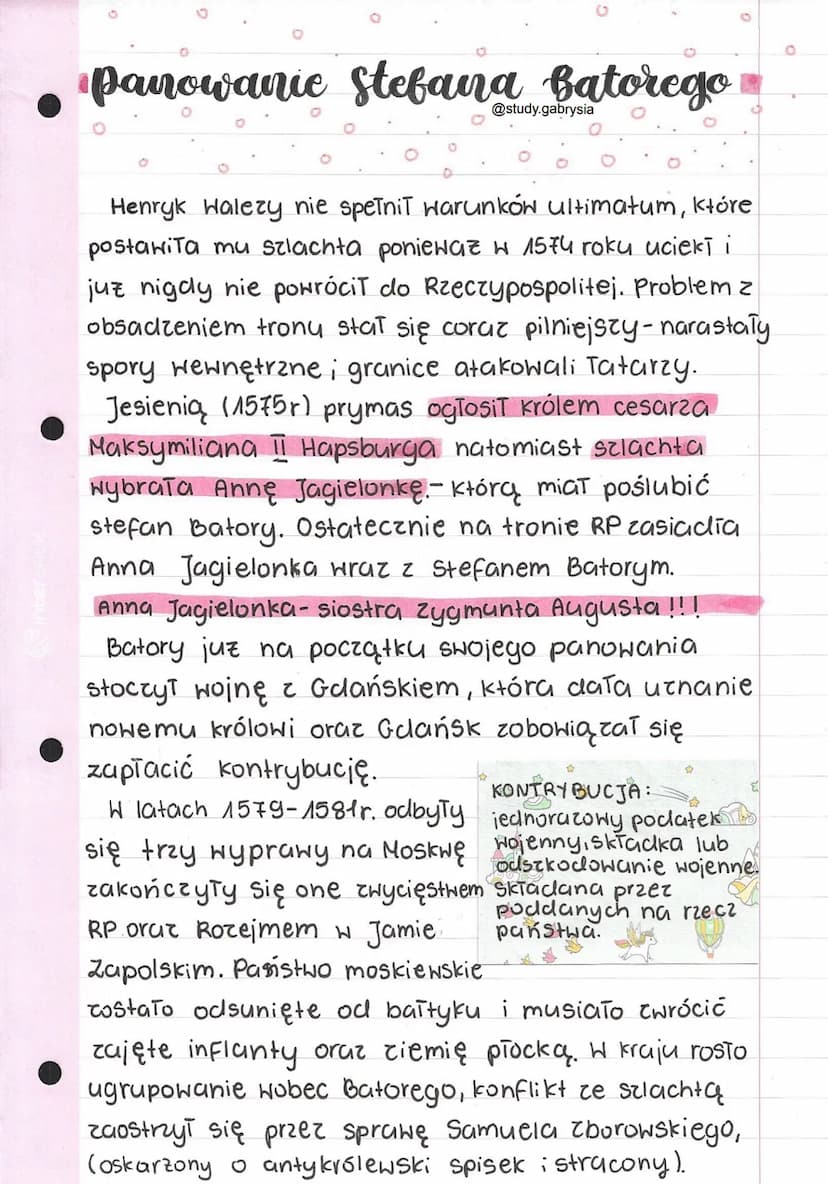 Panowanie Stefana Batorego
@study.gabrysia
Henryk Walezy nie spełnił warunków ultimatum, które
postawiła mu szlachta ponieważ w 1574 roku uciekł i
już nigdy nie powrócił do Rzeczypospolitej. Problem z
obsadzeniem tronu stał się coraz pilniejszy - narastały
spory wewnętrzne i granice atakowali Tatarzy.
Jesienią (1575r) prymas ogłosił królem cesarza
Maksymiliana II Hapsburga natomiast szlachta
wybrała Annę Jagielonkę. - którą miał poślubić
stefan Batory. Ostatecznie na tronie RP zasiadła
Anna Jagielonka wraz z Stefanem Batorym.
Anna Jagielonka - siostra Zygmunta Augusta !!!
Batory już na początku swojego panowania
stoczył wojnę z Gdańskiem, która dała uznanie
nowemu królowi oraz Gdańsk zobowiązał się
zapłacić kontrybucję.
W latach 1579-1581r. odbyły
się trzy wyprawy na Moskwę
zakończyły się one zwycięstwem
RP oraz Rozejmem w Jamie
Zapolskim. Państwo moskiewskie
zostało odsunięte od bałtyku i musiało zwrócić
zajęte inflanty oraz ziemię płocką. W kraju rosło
ugrupowanie wobec Batorego, konflikt ze szlachtą
zaostrzył się przez sprawę Samuela Zborowskiego,
(oskarżony o antykrólewski spisek i strącony).
KONTRYBUCJA:
jednorazowy podatek
wojenny, składka lub
odszkodowanie wojenne.
Składana przez
poddanych na rzecz
państwa.